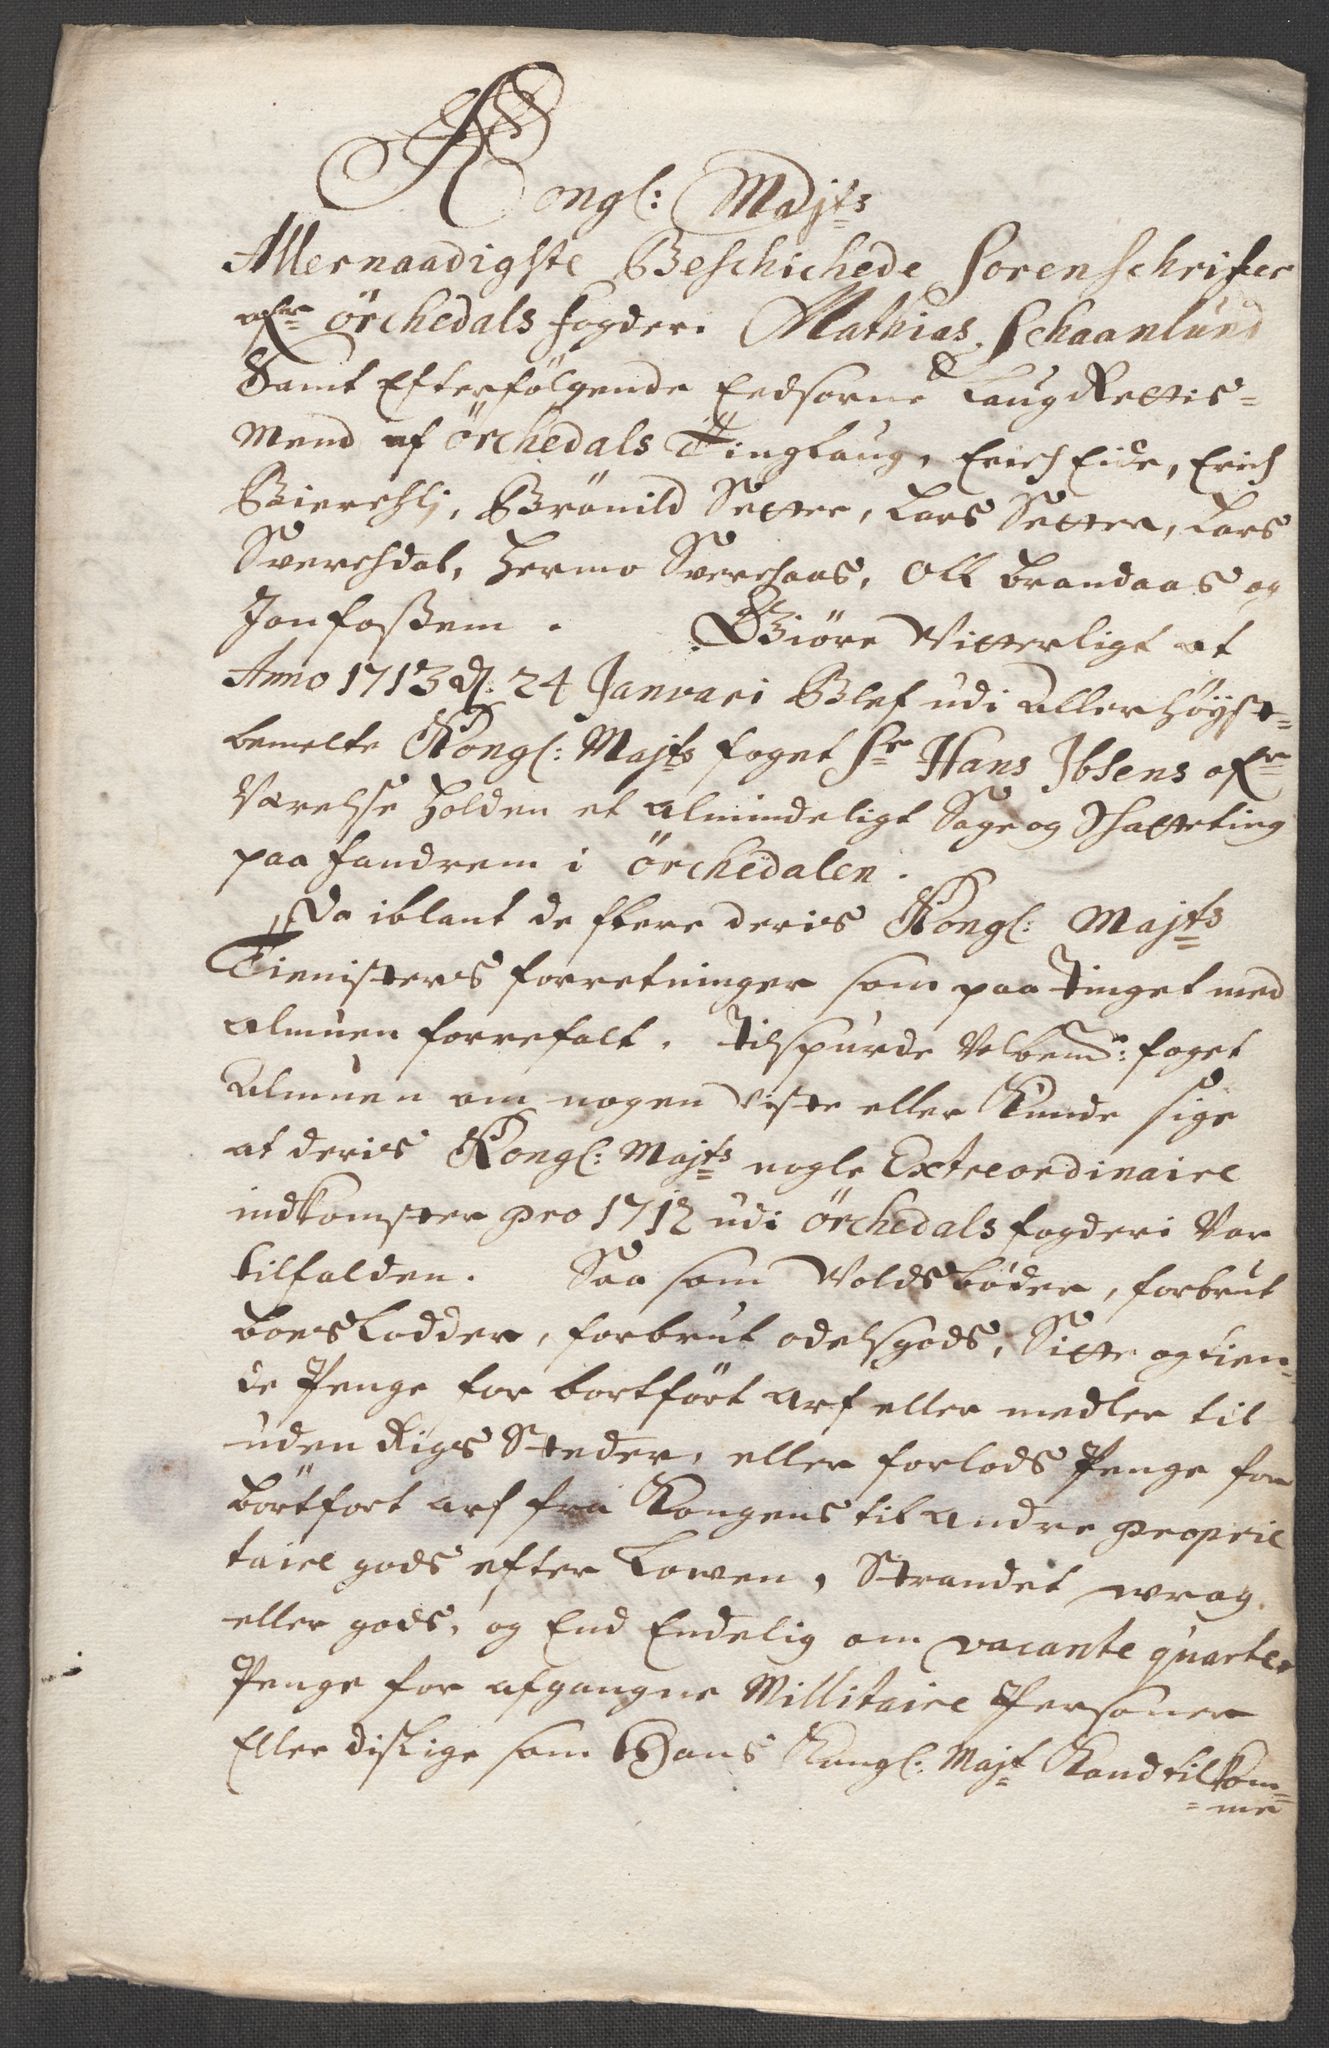 Kongl: Majts
Allernaadigste Beschichede Sorenschrifer
ofr Örchedals fogderi Mathias Schaanlund
Samt Efterfölgende Eedsorne LaugRettis=
Mend af Örchedals Tinglaug, Erich Eide, Erich
Bierchli, Brönild Setter, Lars Setter, Lars
Sverchdal, Hermo Sverchaas, Oll Brandaas og
Jon foßem. Giöre Vitterligt at
Anno 1713 d. 24 Januari Blef udi Allerhöyst=
bemelte Kongl: Majts foget Sr Hans Ibsens ofr
Værelse holden et almindeligt Sage og Skatteting
paa fandrem i Örchedalen.
Da iblant de flere deris Kongl: Majts
Tienisters forretninger som paa Tinget med
Almuen forrefalt. Tilspurde Velbemte: foget
Almuen om nogen viste eller Kunde sige
at deris Kongl: Majts nogle Extreordinaire
indkomster pro 1712 udi Örchedals fogderi Var
tilfalden. Saa som Voldsböder, forbrut
boeslodder, forbrut odelsgods, Sitte og tien=
de Penge for bortfört Arf eller medler til
uden Rigs Steder, eller forlods Penge for
börtfort arf fra Kongens til andre proprie
taire gods efter Lowen, Strandet wrag
eller gods, og End Endelig om vacante quarter
Penge for afgangne Millitaire Personer
Eller dislige som Hans Kongl: Majt Kand tilkom=
=me